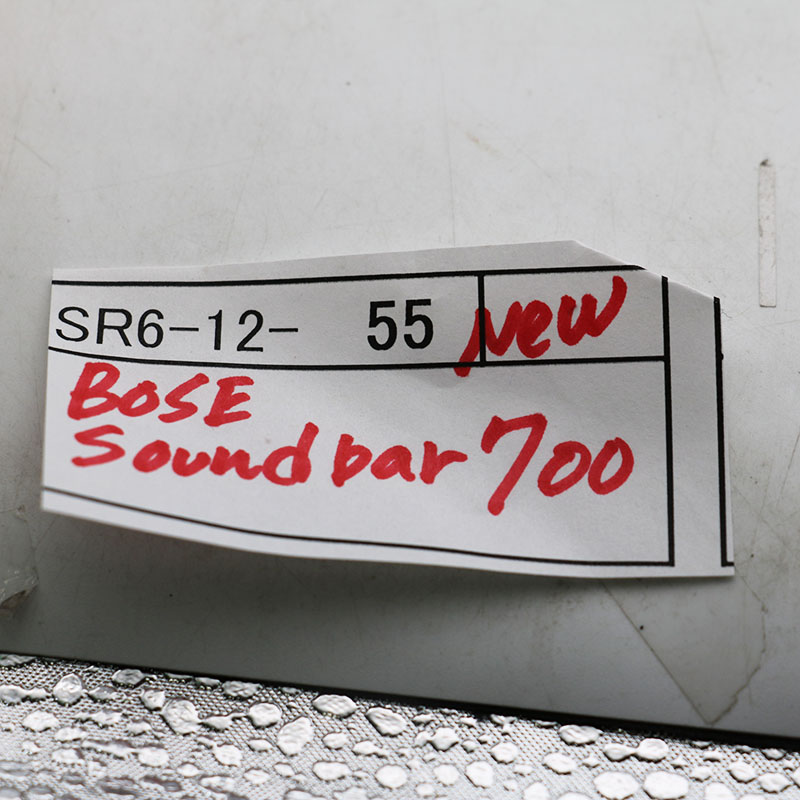 SR6-12- 55 New
BOSE
Sound bar 700